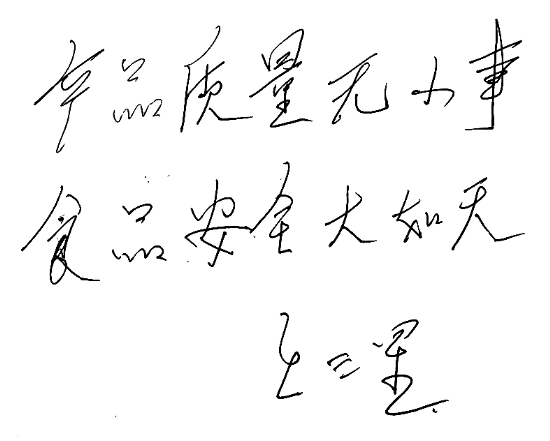 产品质量无小事
食品安全大如天
三星